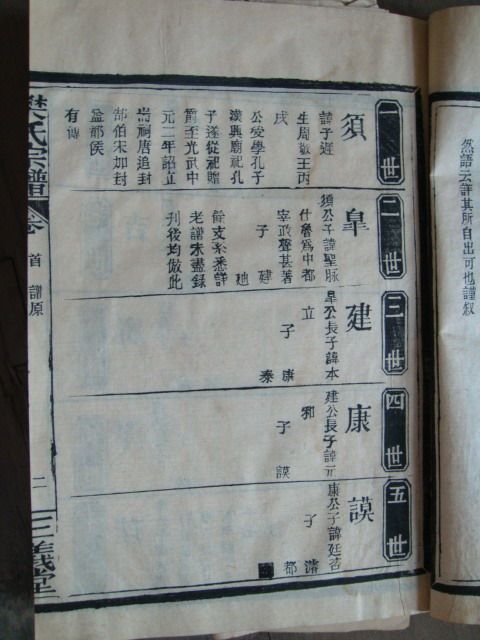 然語云詳其所自出可也謹叙
一世
須
諱子遲
生周敬王丙
戌
公受學孔子
漢興廟祀孔
子遂從祀贈
爵至光武中
元二年詔立
耑祠唐追封
郜伯宋加封
益都侯
有傳
二世
皐
須公子諱聖脉
仕魯爲中都
宰政聲甚著
子 建
虺
餘支系悉詳
老譜未盡錄
刊後均倣此
三世
建
皐公長子諱本
立
子 康
秦
四世
康
建公長子諱元
邦
子 謨
五世
謨
康公子諱廷茗
子 濬
都
樊氏宗譜
卷
首 譜原
二
三義堂